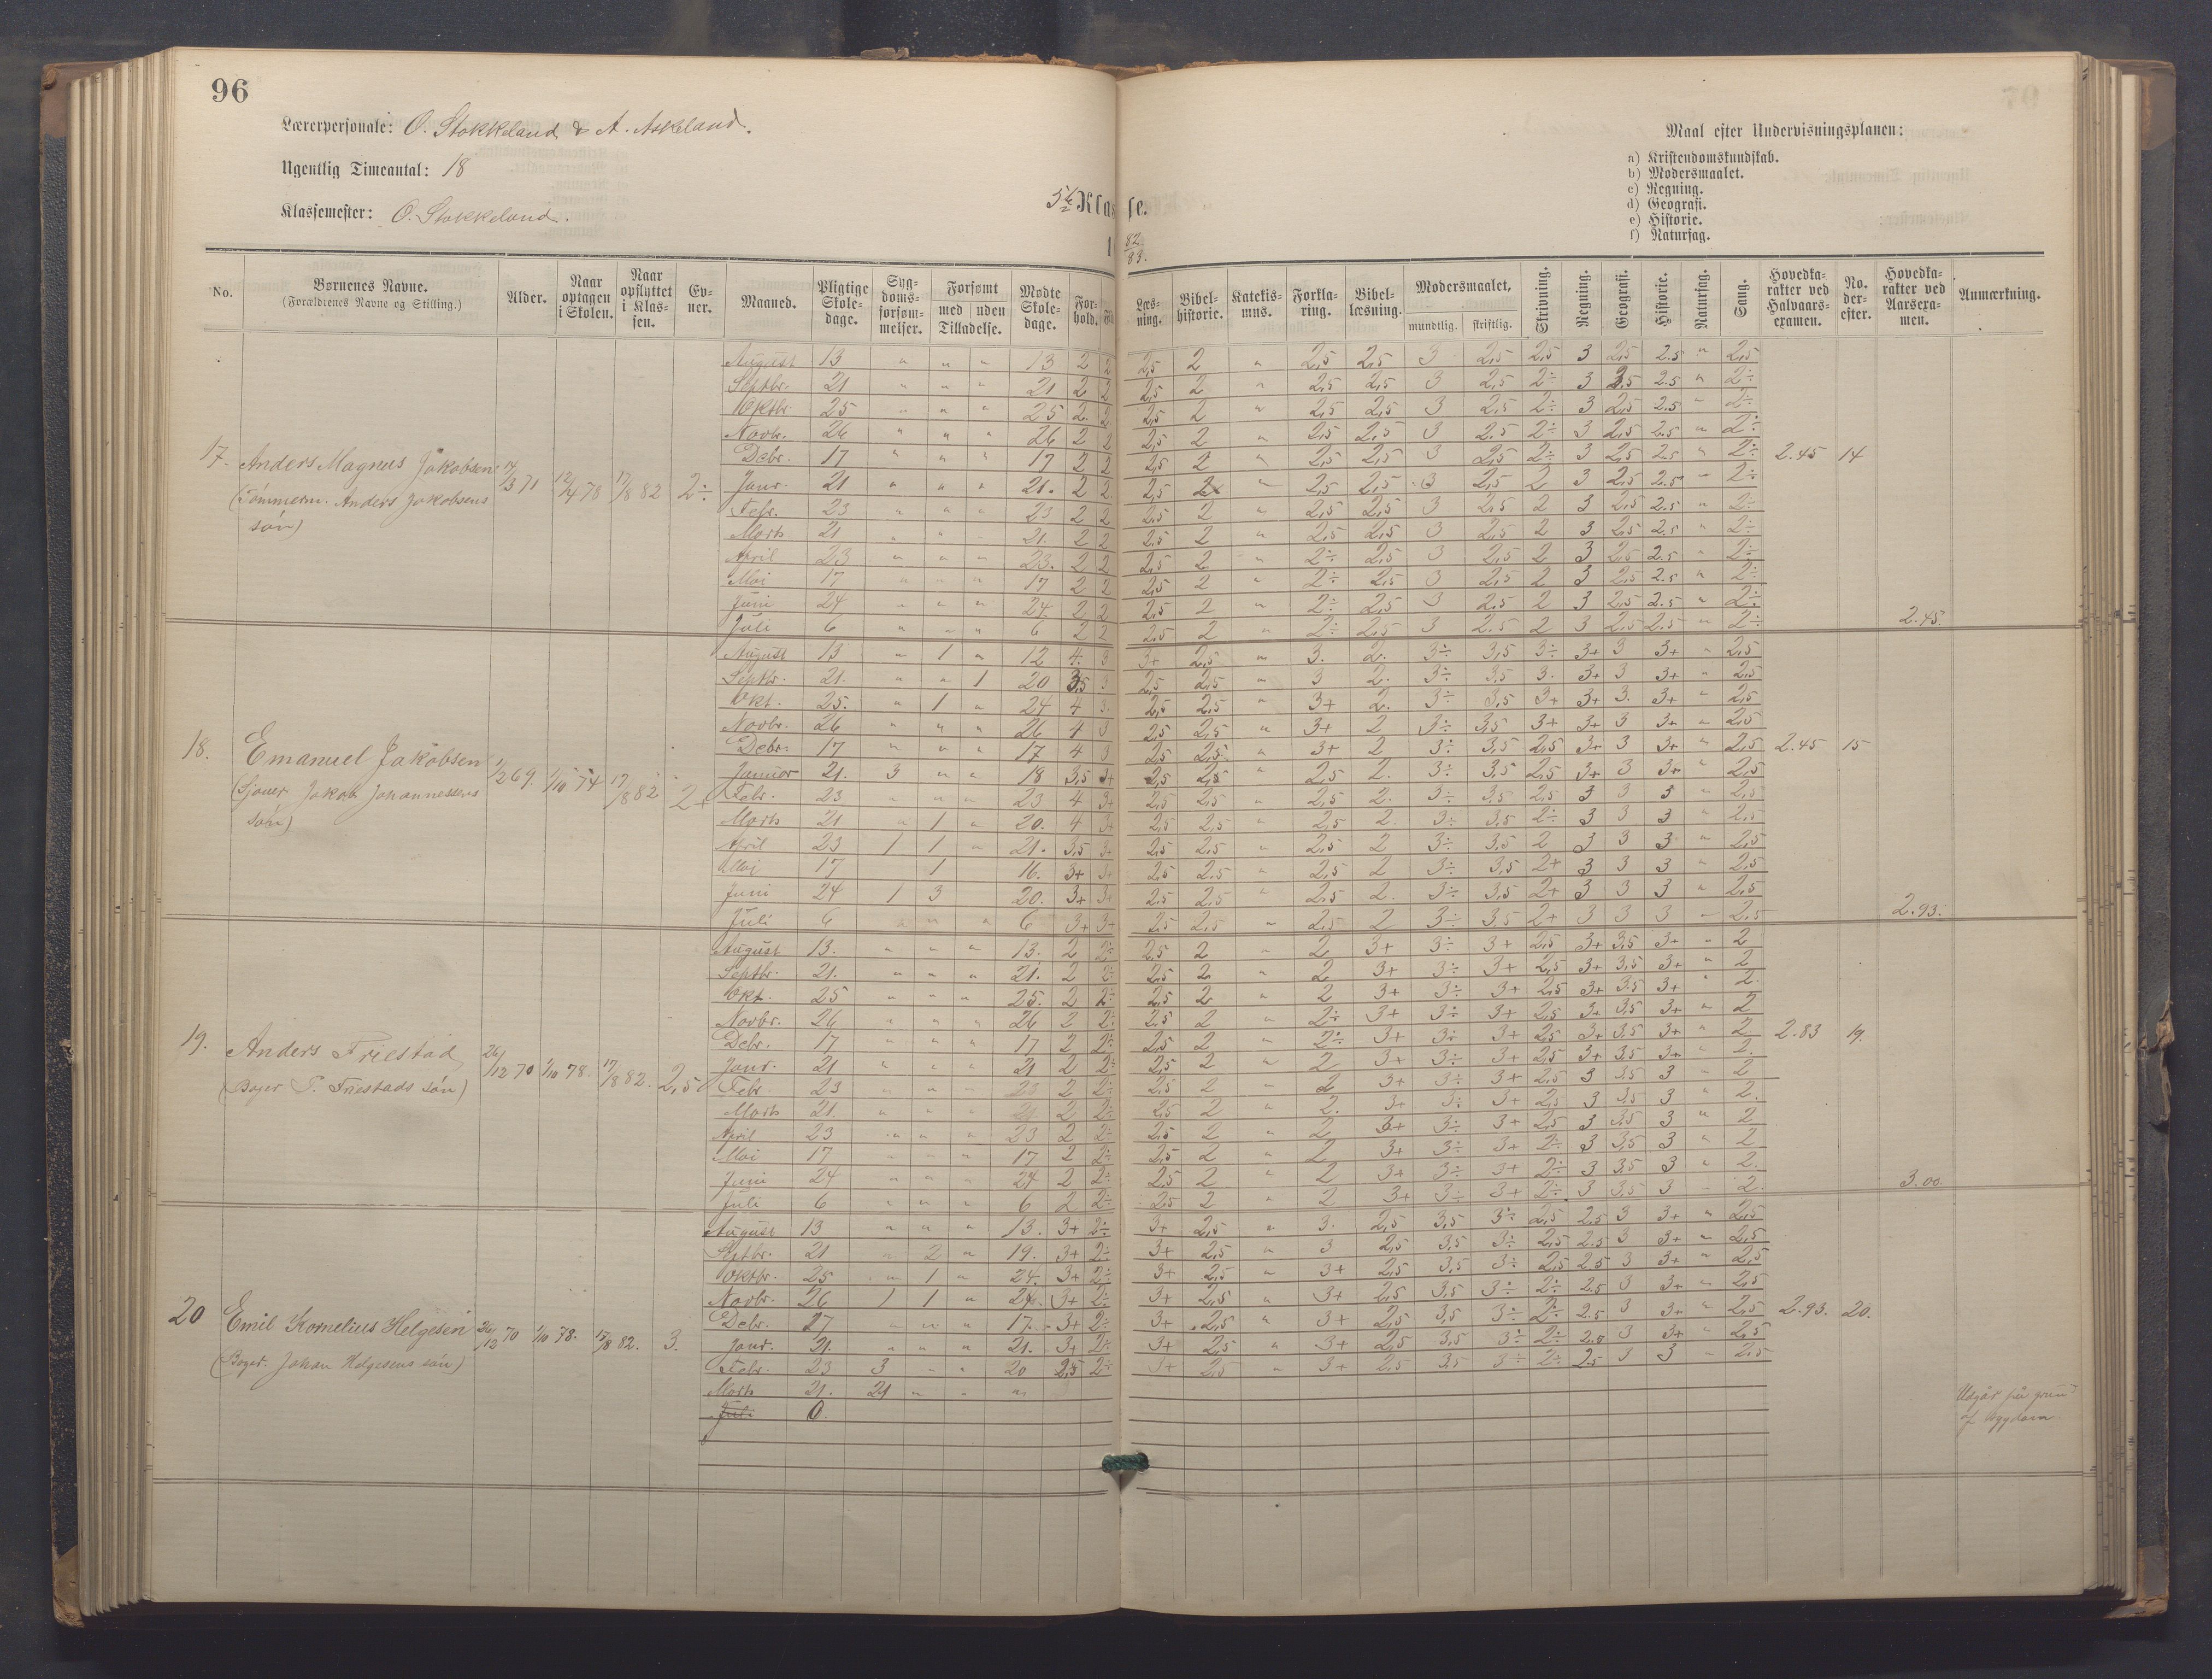 96
Lærerpersonale: O. Stokkeland & A. Askeland.
Ugentlig Timeantal: 18
Klassemester: O. Stokkeland.
5te Klasse.
18 82/83.
Maal efter Undervisningsplanen:
a) Kristendomskundskab.
b) Modersmaalet.
c) Regning.
d) Geografi.
e) Historie.
f) Naturfag.
No. | Børnenes Navne. (Forældrenes Navne og Stilling.) | Alder. | Naar optagen i Skolen. | Naar opflyttet i Klassen. | Evner. | Maaned. | Pligtige Skoledage. | Sygdomsforsømmelser. | Forsømt med Tilladelse. | uden Tilladelse. | Mødte Skoledage. | Forhold. | Læsning. | Bibelhistorie. | Katekismus. | Forklaring. | Bibellæsning. | Modersmaalet, mundtlig. | skriftlig. | Skrivning. | Regning. | Geografi. | Historie. | Naturfag. | Sang. | Hovedkarakter ved Halvaarsexamen. | No. derefter. | Hovedkarakter ved Aarsexamen. | Anmærkning.
17. Anders Magnus Jakobsen 14/3 71 12/4 78 17/8 82 2÷
(Tømmerm. Anders Jakobsens søn)
August 13 " " " 13 2 2 2,5 2 " 2,5 2,5 3 2,5 2,5 3 2,5 2.5 " 2,5
Septbr. 21 " " " 21 2 2 2,5 2 " 2,5 2,5 3 2,5 2÷ 3 2.5 2.5 " 2÷
Oktbr. 25 " " " 25 2. 2 2,5 2 " 2,5 2,5 3 2,5 2÷ 3 2,5 2.5 " 2÷
Novbr. 26 " " " 26 2 2 2,5 2 " 2,5 2,5 3 2.5 2÷ 3 2,5 2.5 " 2÷
Debr. 17 " " " 17 2 2 2,5 2 " 2,5 2,5 3 2,5 2÷ 3 2,5 2.5 " 2÷ 2.45 14
Janr. 21 " " " 21. 2 2 2,5 2 " 2,5 2,5 3 2,5 2 3 2,5 2.5 " 2÷
Febr. 23 " " " 23 2 2 2,5 2 " 2,5 2,5 3 2,5 2 3 2,5 2.5 " 2÷
Marts 21 " " " 21. 2 2 2,5 2 " 2,5 2,5 3 2,5 2 3 2,5 2.5 " 2÷
April 23 " " " 23. 2 2 2,5 2 " 2÷ 2,5 3 2,5 2 3 2,5 2.5 " 2÷
Mai 17 " " " 17 2 2 2,5 2 " 2÷ 2,5 3 2,5 2 3 2,5 2.5 " 2÷
Juni 24 " " " 24. 2 2 2,5 2 " 2÷ 2,5 3 2,5 2 3 2,5 2.5 " 2÷
Juli 6 " " " 6 2 2 2,5 2 " 2÷ 2,5 3 2.5 2 3 2,5 2.5 " 2÷ 2.45.
18. Emanuel Jakobsen 1/2 69. 1/10 74 17/8 82 2+
(Sjouer Jakob Johannessens søn)
August 13 " 1 " 12 4. 3 3+ 2,5 " 3. 2. 3÷ 3,5 3÷ 3+ 3 3+ " 2,5
Septbr. 21. " " 1 20 3,5 3 2,5 2,5 " 3 2. 3÷ 3,5 3. 3+ 3 3+ " 2,5
Okt. 25. " 1 " 24 4 3. 2,5 2,5 " 3+ 2. 3÷ 3,5 3+ 3+ 3. 3+ " 2,5
Novbr. 26 " " " 26 4 3 2,5 2,5 " 3+ 2 3÷ 3,5 3+ 3+ 3 3+ " 2,5
Debr. 17 " " " 17 4 3 2,5 2,5 " 3+ 2 3÷ 3,5 2,5 3+ 3 3+ " 2,5 2.45 15
Januar 21. 3 " " 18 3,5 3+ 2,5 2,5 " 2,5 2. 3÷ 3,5 2,5 3+ 3 3+ " 2,5
Febr. 23 " " " 23 4 3+ 2,5 2,5 " 2,5 2. 3÷ 3,5 2,5 3 3 3 " 2,5
Marts 21 " 1 " 20. 4 3+ 2,5 2,5 " 2,5 2. 3÷ 3,5 2÷ 3 3 3 " 2,5
April 23 1 1 " 21. 3,5 3+ 2,5 2,5 " 2,5 2 3÷ 3,5 2 3 3 3 " 2,5
Mai 17 1 16. 3+ 3+ 2,5 2,5 " 2,5 2 3÷ 3,5 2+ 3 3 3 " 2,5
Juni 24 1 3 20. 3+ 3+ 2,5 2,5 " 2,5 2. 3÷ 3,5 2+ 3 3 3 " 2,5
Juli 6 " " " 6 3+ 3+ 2,5 2,5 " 2,5 2 3÷ 3,5 2+ 3 3 3 " 2,5 2.93.
19. Anders Friestad 26/12 70 1/10 78. 17/8 82. 2,5
(Bager T. Friestads søn)
August 13. " " " 13. 2 2÷ 2,5 2 " 2 3+ 3÷ 3+ 2,5 3+ 3,5 3+ " 2
Septbr. 21. " " " 21. 2 2÷ 2,5 2 " 2 3+ 3÷ 3+ 2,5 3+ 3,5 3+ " 2
Okt. 25 " " " 25. 2 2÷ 2,5 2 " 2 3+ 3÷ 3+ 2,5 3+ 3.5 3+ " 2.
Novbr. 26 " " " 26 2 2÷ 2,5 2 " 2÷ 3+ 3÷ 3+ 2,5 3+ 3,5 3+ " 2
Debr. 17 " " " 17 2 2÷ 2,5 2 " 2÷ 3+ 3÷ 3+ 2,5 3+ 3,5 3+ " 2 2.83 19.
Janr. 21 " " " 21 2 2÷ 2,5 2 " 2 3+ 3÷ 3+ 2,5 3+ 3,5 3+ " 2.
Febr 23 " " " 23 2 2÷ 2,5 2 " 2 3+ 3÷ 3+ 2,5 3 3,5 3 " 2
Marts 21. " " " 21 2 2÷ 2,5 2 " 2. 3+ 3÷ 3+ 2,5 3 3,5 3 " 2.
April 23 " " " 23 2 2÷ 2,5 2 " 2 3+ 3÷ 3+ 2,5 3 3,5 3 " 2
Mai 17 " " " 17 2 2÷ 2,5 2 " 2 3+ 3÷ 3+ 2÷ 3 3,5 3 " 2
Juni 24 " " " 24 2 2÷ 2,5 2 " 2 3+ 3÷ 3+ 2÷ 3 3,5 3 " 2.
Juli 6 " " " 6 2 2÷ 2,5 2 " 2 3+ 3÷ 3+ 2÷ 3 3,5 3 " 2. 3.00
20 Emil Kornelius Helgesen 26/12 70 1/10 78. 17/8 82. 3.
(Bager. Johan Helgesens søn)
August 13 " " " 13. 3+ 2÷ 3+ 2,5 " 3. 2,5 3,5 3÷ 2,5 2.5 3 3+ " 2,5
Septbr. 21 " 2 " 19. 3+ 2÷ 3+ 2,5 " 3 2,5 3,5 3÷ 2,5 2.5 3 3+ " 2,5
Oktbr. 25 " 1 " 24. 3+ 2÷ 3+ 2,5 " 3+ 2,5 3,5 3÷ 2,5 2.5 3 3+ " 2,5
Novbr. 26 1 1 " 24. 3+ 2÷ 3+ 2,5 " 3+ 2,5 3,5 3÷ 2÷ 2.5 3 3+ " 2,5
Debr. 27 " " " 17. 3+ 2÷ 3+ 2,5 " 3+ 2,5 3,5 3÷ 2÷ 2.5 3 3+ " 2,5 2.93. 20.
Janr. 21. " " " 21. 3+ 2÷ 3+ 2,5 " 3+ 2,5 3,5 3÷ 2÷ 2.5 3 3+ " 2,5
Febr. 23 3 " " 20 2,5 2÷ 3+ 2,5 " 3+ 2,5 3,5 3÷ 2÷ 2.5 3 3 " 2,5
Marts 21. 21 " " "
Juli 0.
Udgår på grund
af sygdom